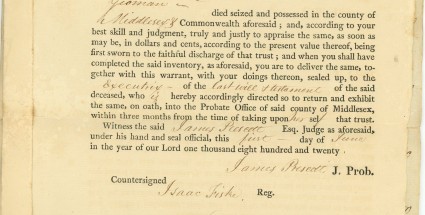 Yeoman
died seized and possessed in the county of
Middlesex & Commonwealth aforesaid; and, according to your
best skill and judgment, truly and justly to appraise the same, as soon as
may be, in dollars and cents, according to the present value thereof, being
first sworn to the faithful discharge of that trust; and when you shall have
completed the said inventory, as aforesaid, you are to deliver the same, to-
gether with this warrant, with your doings thereon, sealed up, to the
Executrix - of the last will & testament of the said
deceased, who is hereby accordingly directed so to return and exhibit
the same, on oath, into the Probate Office of said county of Middlesex,
within three months from the time of taking upon her self that trust.
Witness the said James Prescott Esq. Judge as aforesaid,
under his hand and seal official, this first day of June
in the year of our Lord one thousand eight hundred and twenty.
James Prescott, J. Prob.
Countersigned
Isaac Fiske, Reg.